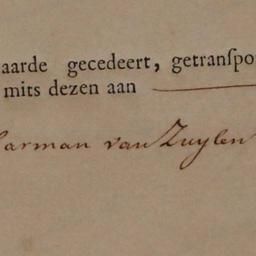 aarde gecedeert, getranſpo
mits dezen aan
Harman van Zuylen